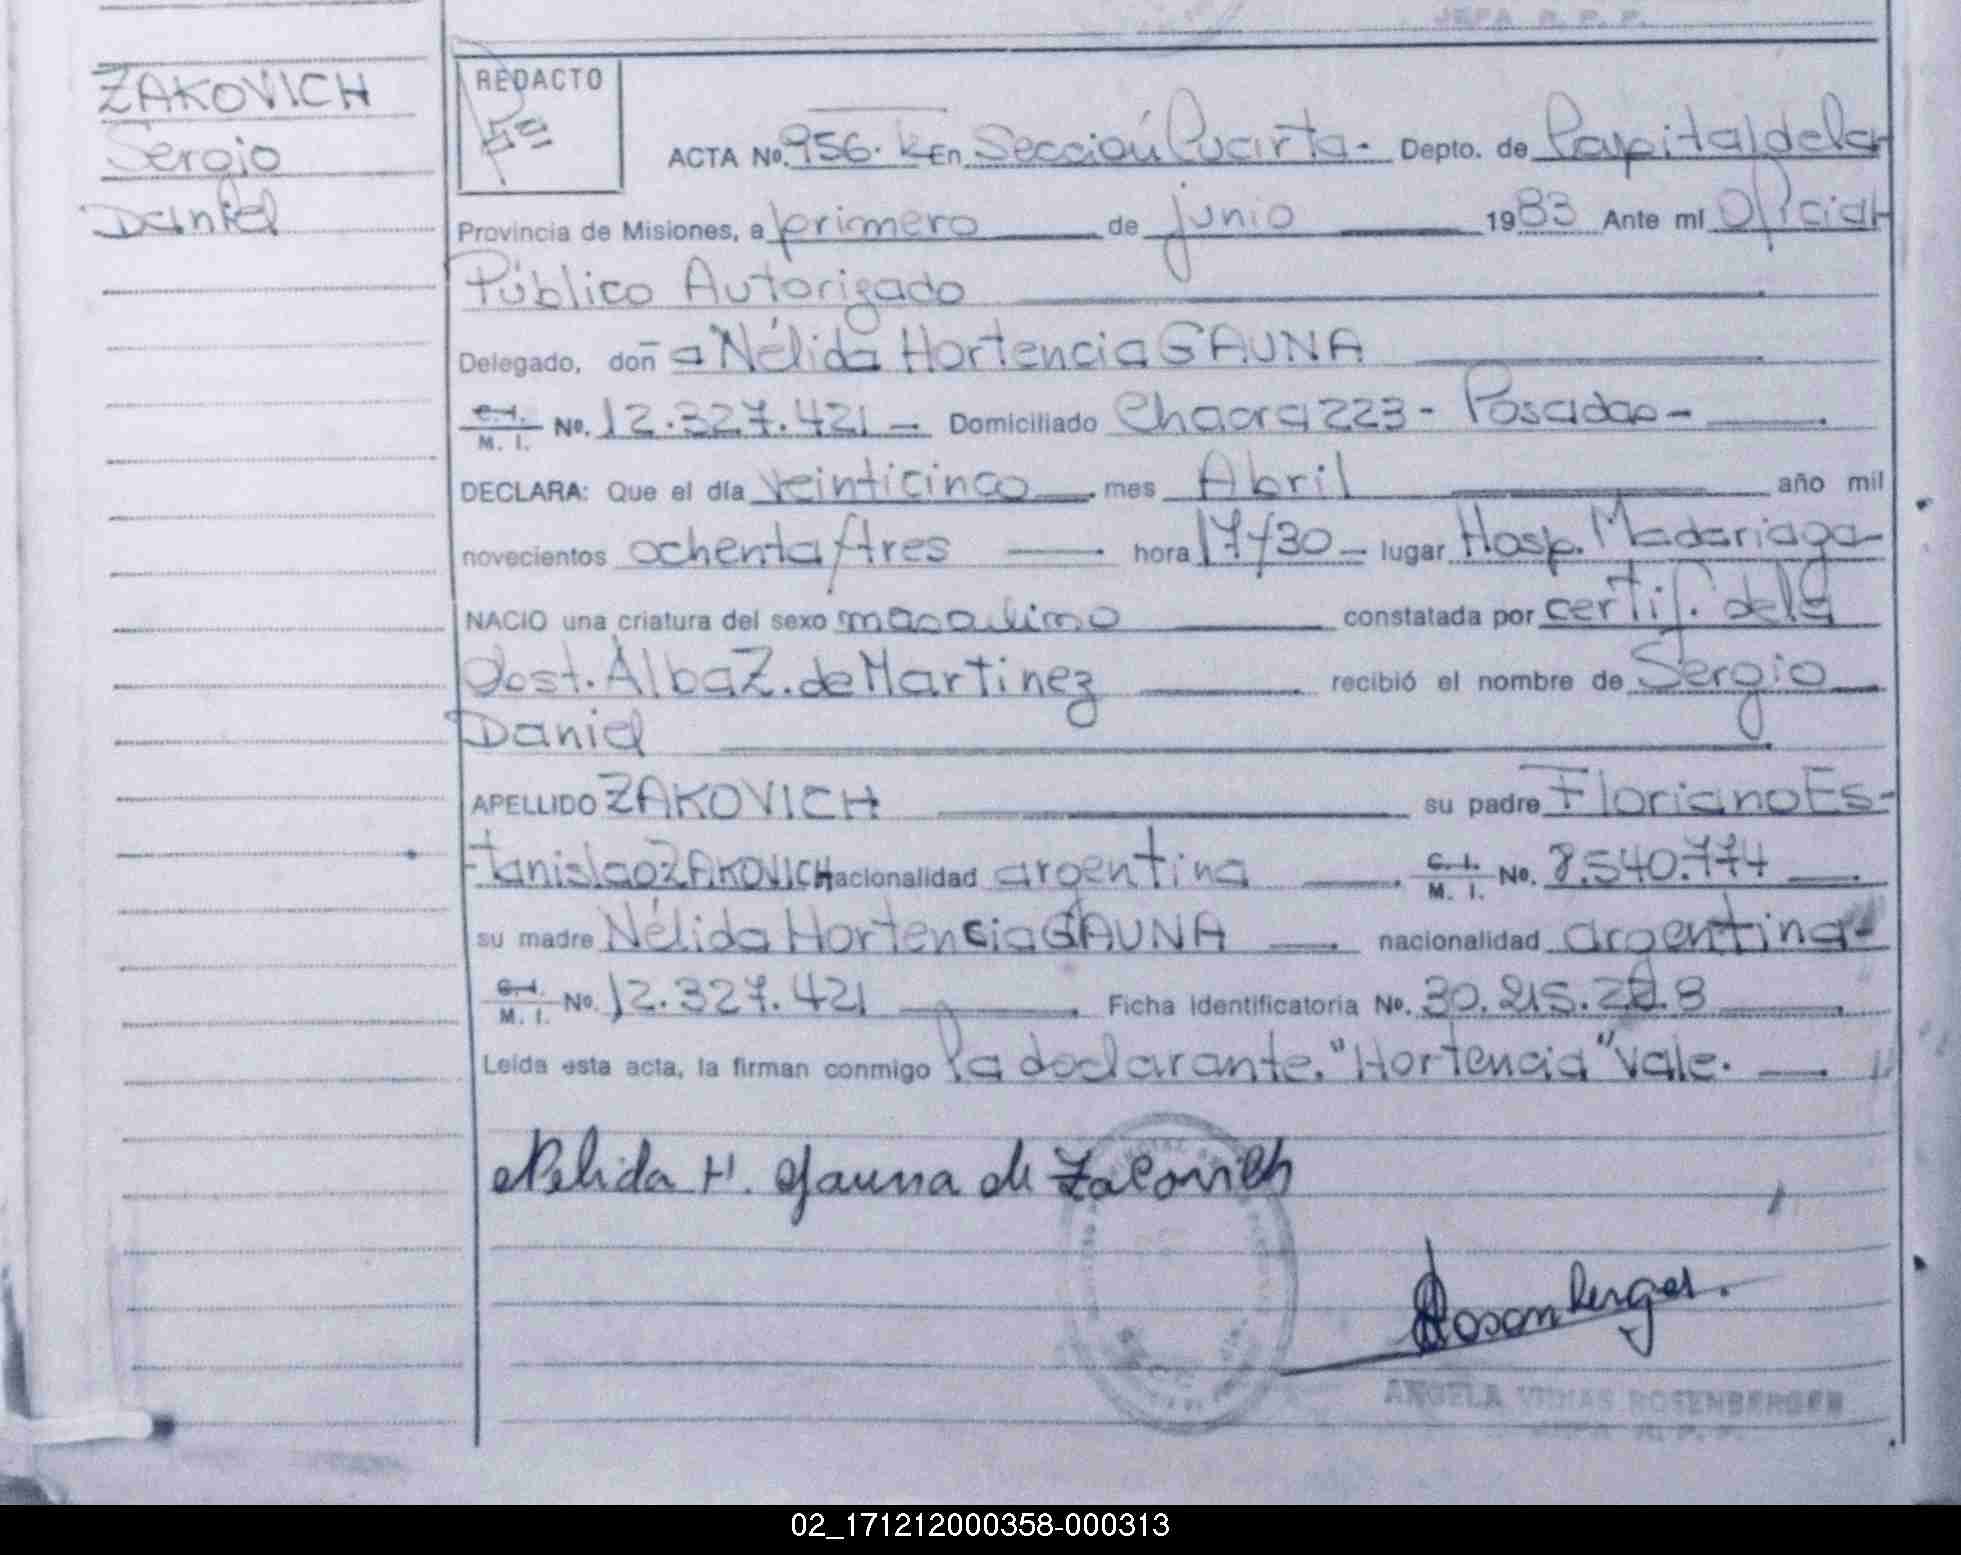 JEFA R. P. P.
ZAKOVICH
Sergio
Daniel
REDACTO
ACTA No. 956. K En Sección Cuarta. Depto. de Capital de la
Provincia de Misiones, a primero de junio 1983 Ante mí Oficial
Público Autorizado
Delegado, doña Nélida Hortencia GAUNA
C.I. M. I. No. 12.327.421 Domiciliado Chacra 223 - Posadas -
DECLARA: Que el día veinticinco mes Abril año mil
novecientos ochenta y tres hora 17y30 lugar Hosp. Madariaga
NACIO una criatura del sexo masculino constatada por certif. de la
Obst. Alba Z. de Martinez recibió el nombre de Sergio
Daniel
APELLIDO ZAKOVICH su padre Floriano Es-
tanislao ZAKOVICH nacionalidad argentina C. I. M. I. No. 8.540.774
su madre Nélida Hortencia GAUNA nacionalidad argentina
C.I. M. I. No. 12.327.421 Ficha Identificatoria No. 30.215.228
Leída esta acta, la firman conmigo la declarante. "Hortencia" Vale.
Nelida H. Gauna de Zacovich
Rosenberger.
ANGELA VIDIAS ROSENBERGER
JEFA R. P. P.
02_171212000358-000313